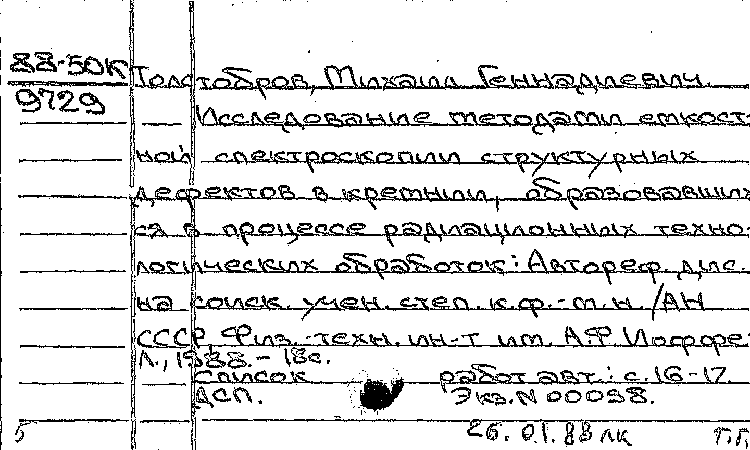 88-50К Толстобров, Михаил Геннадиевич.
9729 Исследование методами емкост-
ной спектроскопии структурных
дефектов в кремнии, образовавших
ся в процессе радиационных техно-
логических обработок: Автореф. дис.
на соиск. учен. степ. к.ф.-т.н. /АН
СССР, Физ.-техн. ин-т им. А.Ф. Иоффе
Л., 1988. - 18с.
Список работ авт.: с. 16-17.
ДСП. Экз. N 00098.
26.01.88 лк